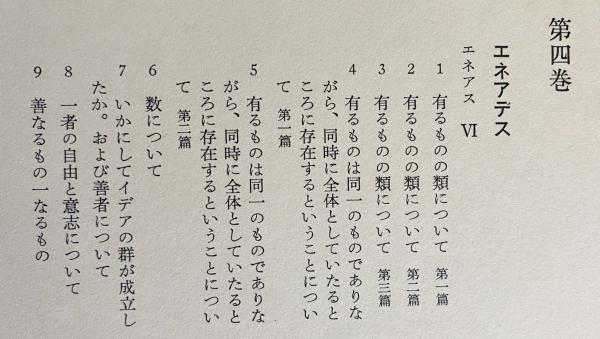 第四巻
エネアデス
エネアス Ⅵ
1 有るものの類について 第一篇
2 有るものの類について 第二篇
3 有るものの類について 第三篇
4 有るものは同一のものでありな
がら、同時に全体としていたると
ころに存在するということについ
て 第一篇
5 有るものは同一のものでありな
がら、同時に全体としていたると
ころに存在するということについ
て 第二篇
6 数について
7 いかにしてイデアの群が成立し
たか。および善者について
8 一者の自由と意志について
9 善なるもの一なるもの